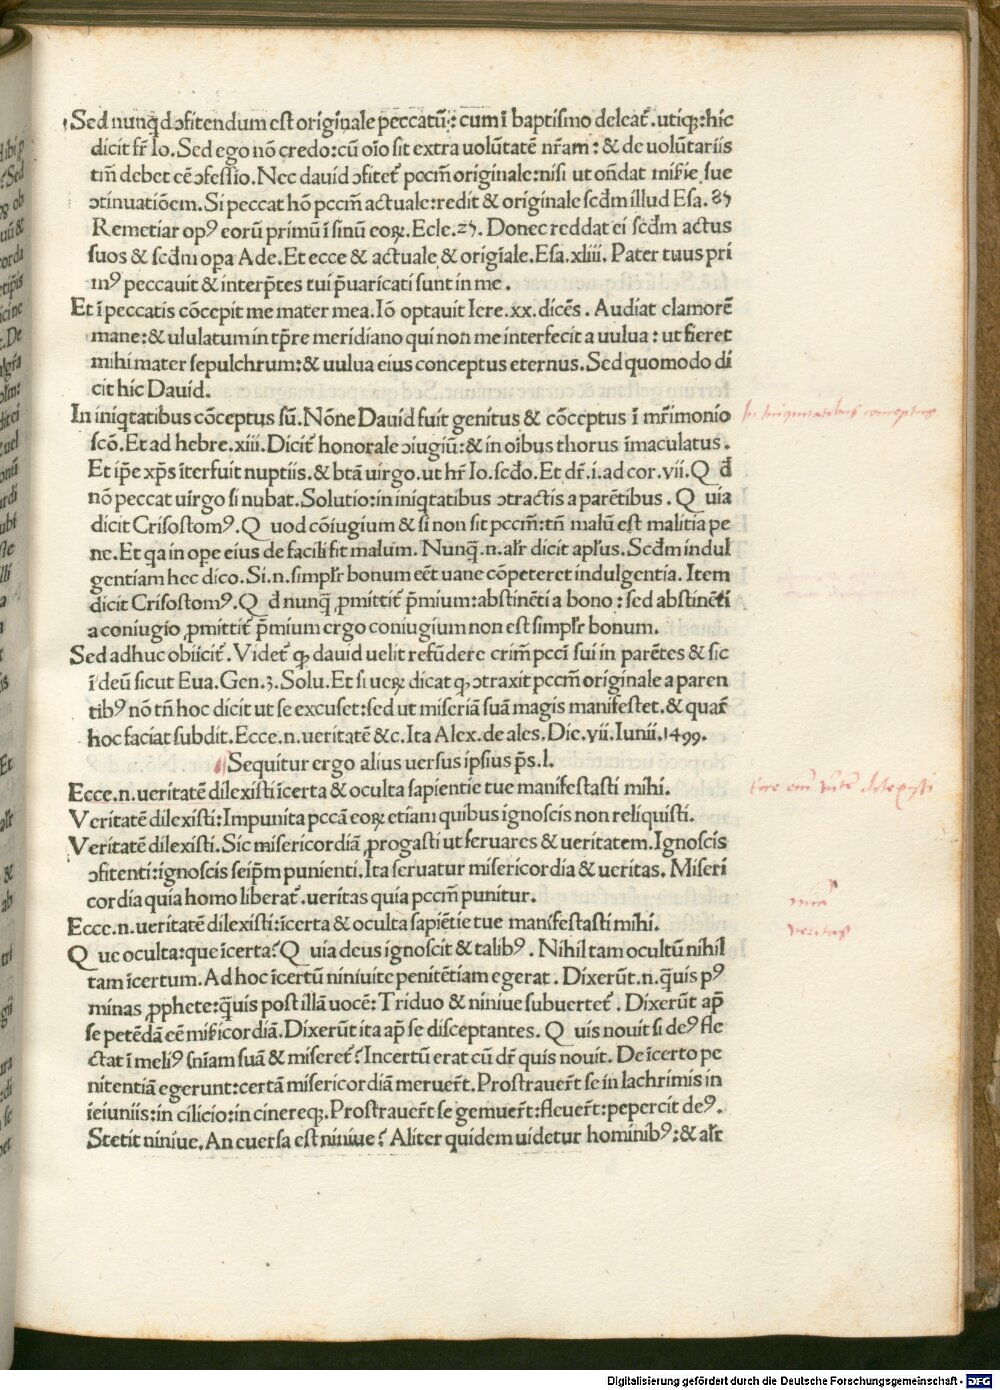 Sed nunq̃d ɔfitendum est originale peccatũ: cum ĩ baptismo deleat᷑. utiqꝫ: hic
dicit fr̃ Io. Sed ego nõ credo: cũ oĩo sit extra uolũtatẽ nr̃am: & de uolũtariis
tm̃ debet eẽ ɔfessio. Nec dauid ɔfitet᷑ pccm̃ originale: nisi ut on̄dat misĩe sue
ɔtinuatiõem. Si peccat hõ pccm̃ actuale: redit & originale scd̃m illud Esa. 85
Remetiar opꝰ eorũ primũ ĩ sinũ eoꝝ. Ecle. 25. Donec reddat ei scd̃m actus
suos & scd̃m opa Ade. Et ecce & actuale & origĩale. Esa. xliii. Pater tuus pri
mꝰ peccauit & interp̃tes tui p̃uaricati sunt in me.
Et ĩ peccatis cõcepit me mater mea. Iõ optauit Iere. xx. dicẽs. Audiat clamorẽ
mane: & ululatum in tp̃re meridiano qui non me interfecit a uulua: ut fieret
mihi mater sepulchrum: & uulua eius conceptus eternus. Sed quomodo di
cit hic Dauid.
In iniq̃tatibus cõceptus sũ. Nõne Dauid fuit genitus & cõceptus ĩ mr̃imonio
scõ. Et ad hebre. xiii. Dicit᷑ honorale ɔiugiũ: & in oibus thorus ĩmaculatus.
Et ip̃e xp̃s ĩterfuit nuptiis. & btã uirgo. ut hr̃ Io. scd̃o. Et dr̃. i. ad cor. vii. Q đ
nõ peccat uirgo si nubat. Solutio: in iniq̃tatibus ɔtractis a parẽtibus. Q uia
dicit Crisostomꝰ. Q uod cõiugium & si non sit pccm̃: tñ malũ est malitia pe
ne. Et qa in ope eius de facili fit malum. Nunq̃. n. alr̃ dicit apl̃us. Scd̃m indul
gentiam hec dico. Si. n. simplr̃ bonum eẽt uane cõpeteret indulgentia. Item
dicit Crisostomꝰ. Q đ nunq̃ ꝓmittit᷑ p̃mium: abstinẽti a bono: sed abstinẽti
a coniugio ꝓmittit᷑ p̃mium ergo coniugium non est simplr̃ bonum.
Sed adhuc obiicit᷑. Videt᷑ qꝫ dauid uelit refũdere crim̃ pccĩ sui in parẽtes & sic
ĩ deũ sicut Eua. Gen. 3. Solu. Et si ueꝝ dicat qꝫ ɔtraxit pccm̃ originale a paren
tibꝰ nõ tñ hoc dicit ut se excuset: sed ut miseriã suã magis manifestet. & quar̃
hoc faciat subdit. Ecce. n. ueritatẽ &c. Ita Alex. de ales. Die. vii. Iunii. 1499.
Sequitur ergo alius uersus ipsius p̃s. l.
Ecce. n. ueritatẽ dilexisti ĩcerta & oculta sapientie tue manifestasti mihi.
Veritatẽ dilexisti: Impunita pccã eoꝝ etiam quibus ignoscis non reliquisti.
Veritatẽ dilexisti. Sic misericordiã ꝓrogasti ut seruares & ueritatem. Ignoscis
ɔfitenti: ignoscis seip̃m punienti. Ita seruatur misericordia & ueritas. Miseri
cordia quia homo liberat᷑. ueritas quia pccm̃ punitur.
Ecce. n. ueritatẽ dilexisti: ĩcerta & oculta sapiẽtie tue manifestasti mihi.
Q ue oculta: que ĩcerta? Q uia deus ignoscit & talibꝰ. Nihil tam ocultũ nihil
tam ĩcertum. Ad hoc ĩcertũ niniuite penitẽtiam egerat. Dixerũt. n. q̃uis pꝰ
minas ꝓphete: q̃uis post illã uocẽ: Triduo & niniue subuertet᷑. Dixerũt ap̃
se petẽdã eẽ mis̃icordiã. Dixerũt ita ap̃ se disceptantes. Q uis nouit si deꝰ fle
ctat ĩ meliꝰ sñiam suã & miseret᷑? Incertũ erat cũ dr̃ quis nouit. De ĩcerto pe
nitentiã egerunt: certã misericordiã meruer̃t. Prostrauer̃t se in lachrimis in
ieiuniis: in cilicio: in cinereqꝫ. Prostrauer̃t se gemuer̃t: fleuer̃t: pepercit deꝰ.
Stetit niniue. An euersa est niniue? Aliter quidem uidetur hominibꝰ: & alr̃
In iniquitatibus conceptus
Ecce enĩ ũtatẽ dilexisti
veritas
Digitalisierung gefördert durch die Deutsche Forschungsgemeinschaft - DFG